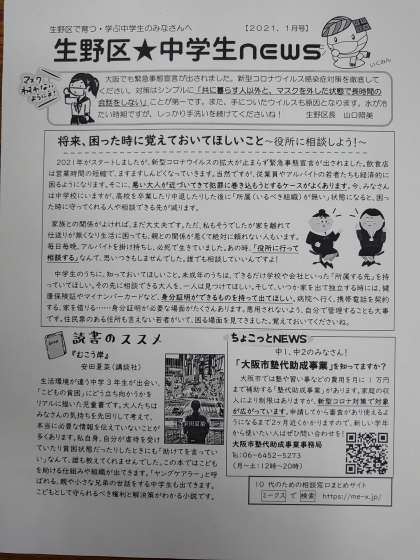 生野区で育つ・学ぶ中学生のみなさんへ 【2021、1月号】
生野区★中学生news
いくみん
マスク、
わすれない
ようにネ!
大阪でも緊急事態宣言が出されました。新型コロナウイルス感染症対策を徹底して
ください。対策はシンプルに「共に暮らす人以外と、マスクを外した状態で長時間の
会話をしない」ことが第一です。また、手についたウイルスも原因となります。水が冷
たい時期ですが、しっかり手洗いを続けてくださいね! 生野区長 山口照美
将来、困った時に覚えておいてほしいこと~役所に相談しよう!~
2021年がスタートしましたが、新型コロナウイルスの拡大が止まらず緊急事態宣言が出されました。飲食店
は営業時間の短縮で、ますますしんどくなっていきます。当然ですが、従業員やアルバイトの若者たちも経済的に
困るようになります。そこに、悪い大人が近づいてきて犯罪に巻き込もうとするケースがよくあります。今、みなさん
は中学校にいますが、高校を卒業したり中退したりした後に「所属(いるべき組織)が無い」状態になると、困っ
た時に守ってくれる人や相談できる先が減ります。
家族との関係がよければ、まだ大丈夫です。ただ、私もそうでしたが家を離れて
仕送りが無くなり生活に困っても、親との関係が悪くて絶対に頼れない人もいます。
毎日毎晩、アルバイトを掛け持ちし、必死で生きていました。あの時、「役所に行って
相談する」なんて、思いつきもしませんでした。誰でも相談していいんですよ!
中学生のうちに、知っておいてほしいこと。未成年のうちは、できるだけ学校や会社といった「所属する先」を持
っていてほしい。その先に相談できる大人を、一人は見つけてほしい。そして、いつか家を出て独立する時には、健
康保険証やマイナンバーカードなど、身分証明ができるものを持って出てほしい。病院へ行く、携帯電話を契約
する、家を借りる……身分証明が必要な場面がたくさんあります。悪用されないよう、自分で管理することも大事
です。住民票のある役所も言えない若者がいて、困る場面を見てきました。覚えておいてくださいね。
読書のススメ
『むこう岸』
安田夏菜(講談社)
生活環境が違う中学3年生が出会い、
「こどもの貧困」にどう立ち向かうかを
リアルに描いた児童書です。大人たちは
みなさんの気持ちを先回りして考えて、
本当に必要な情報を伝えていないことが
多くあります。私自身、自分が虐待を受け
ていたり貧困状態だったりしたときにも「助けてを言ってい
い」なんて、誰も教えてくれませんでした。この本ではこども
を助ける仕組みや組織が出てきます。「ヤングケアラー」と呼
ばれる、親や小さな兄弟の世話をする中学生も出てきます。
こどもとして守られるべき権利と解決策がわかる小説です。
ちょこっとNEWS
中1、中2のみなさん!
「大阪市塾代助成事業」を知ってますか?
大阪市では塾や習い事などの費用を月に1万円
まで補助する「塾代助成事業」があります。家庭の収
入により制限はありますが、新型コロナ対策で対象
が広がっています。申請してから審査があり使えるよ
うになるまで2ヶ月近くかかりますので、新しい学年
から使いたい人はぜひ問い合わせを!
大阪市塾代助成事業事務局
Tel:06-6452-5273
(月~土:12時~20時)
10代のための相談窓口まとめサイト
ミークス で 検索 https://me-x.jp/